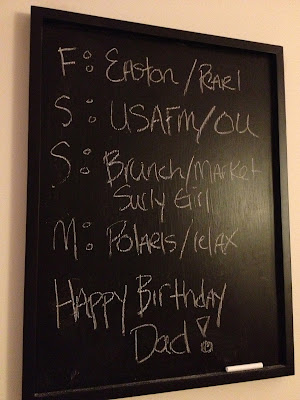 F: EASTON/PEARL
S: USAFM/OU
S: Brunch/Market
Surly Girl
M: Polaris/relax
HAPPY Birthday
Dad!